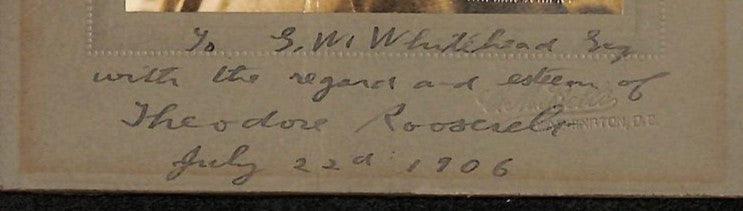 To G. M Whitehead Esq
with the regard and esteem of
Theodore Roosevelt
WASHINGTON, D.C.
July 22d 1906